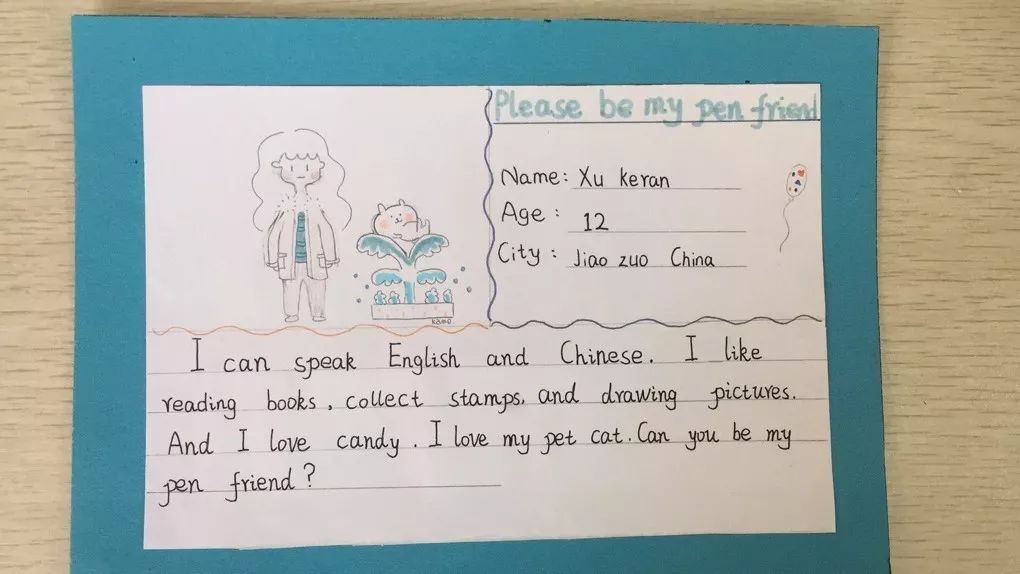 Please be my pen friend
Name: Xu keran
Age: 12
City: Jiao zuo China
I can speak English and Chinese. I like
reading books, collect stamps, and drawing pictures.
And I love candy. I love my pet cat. Can you be my
pen friend?